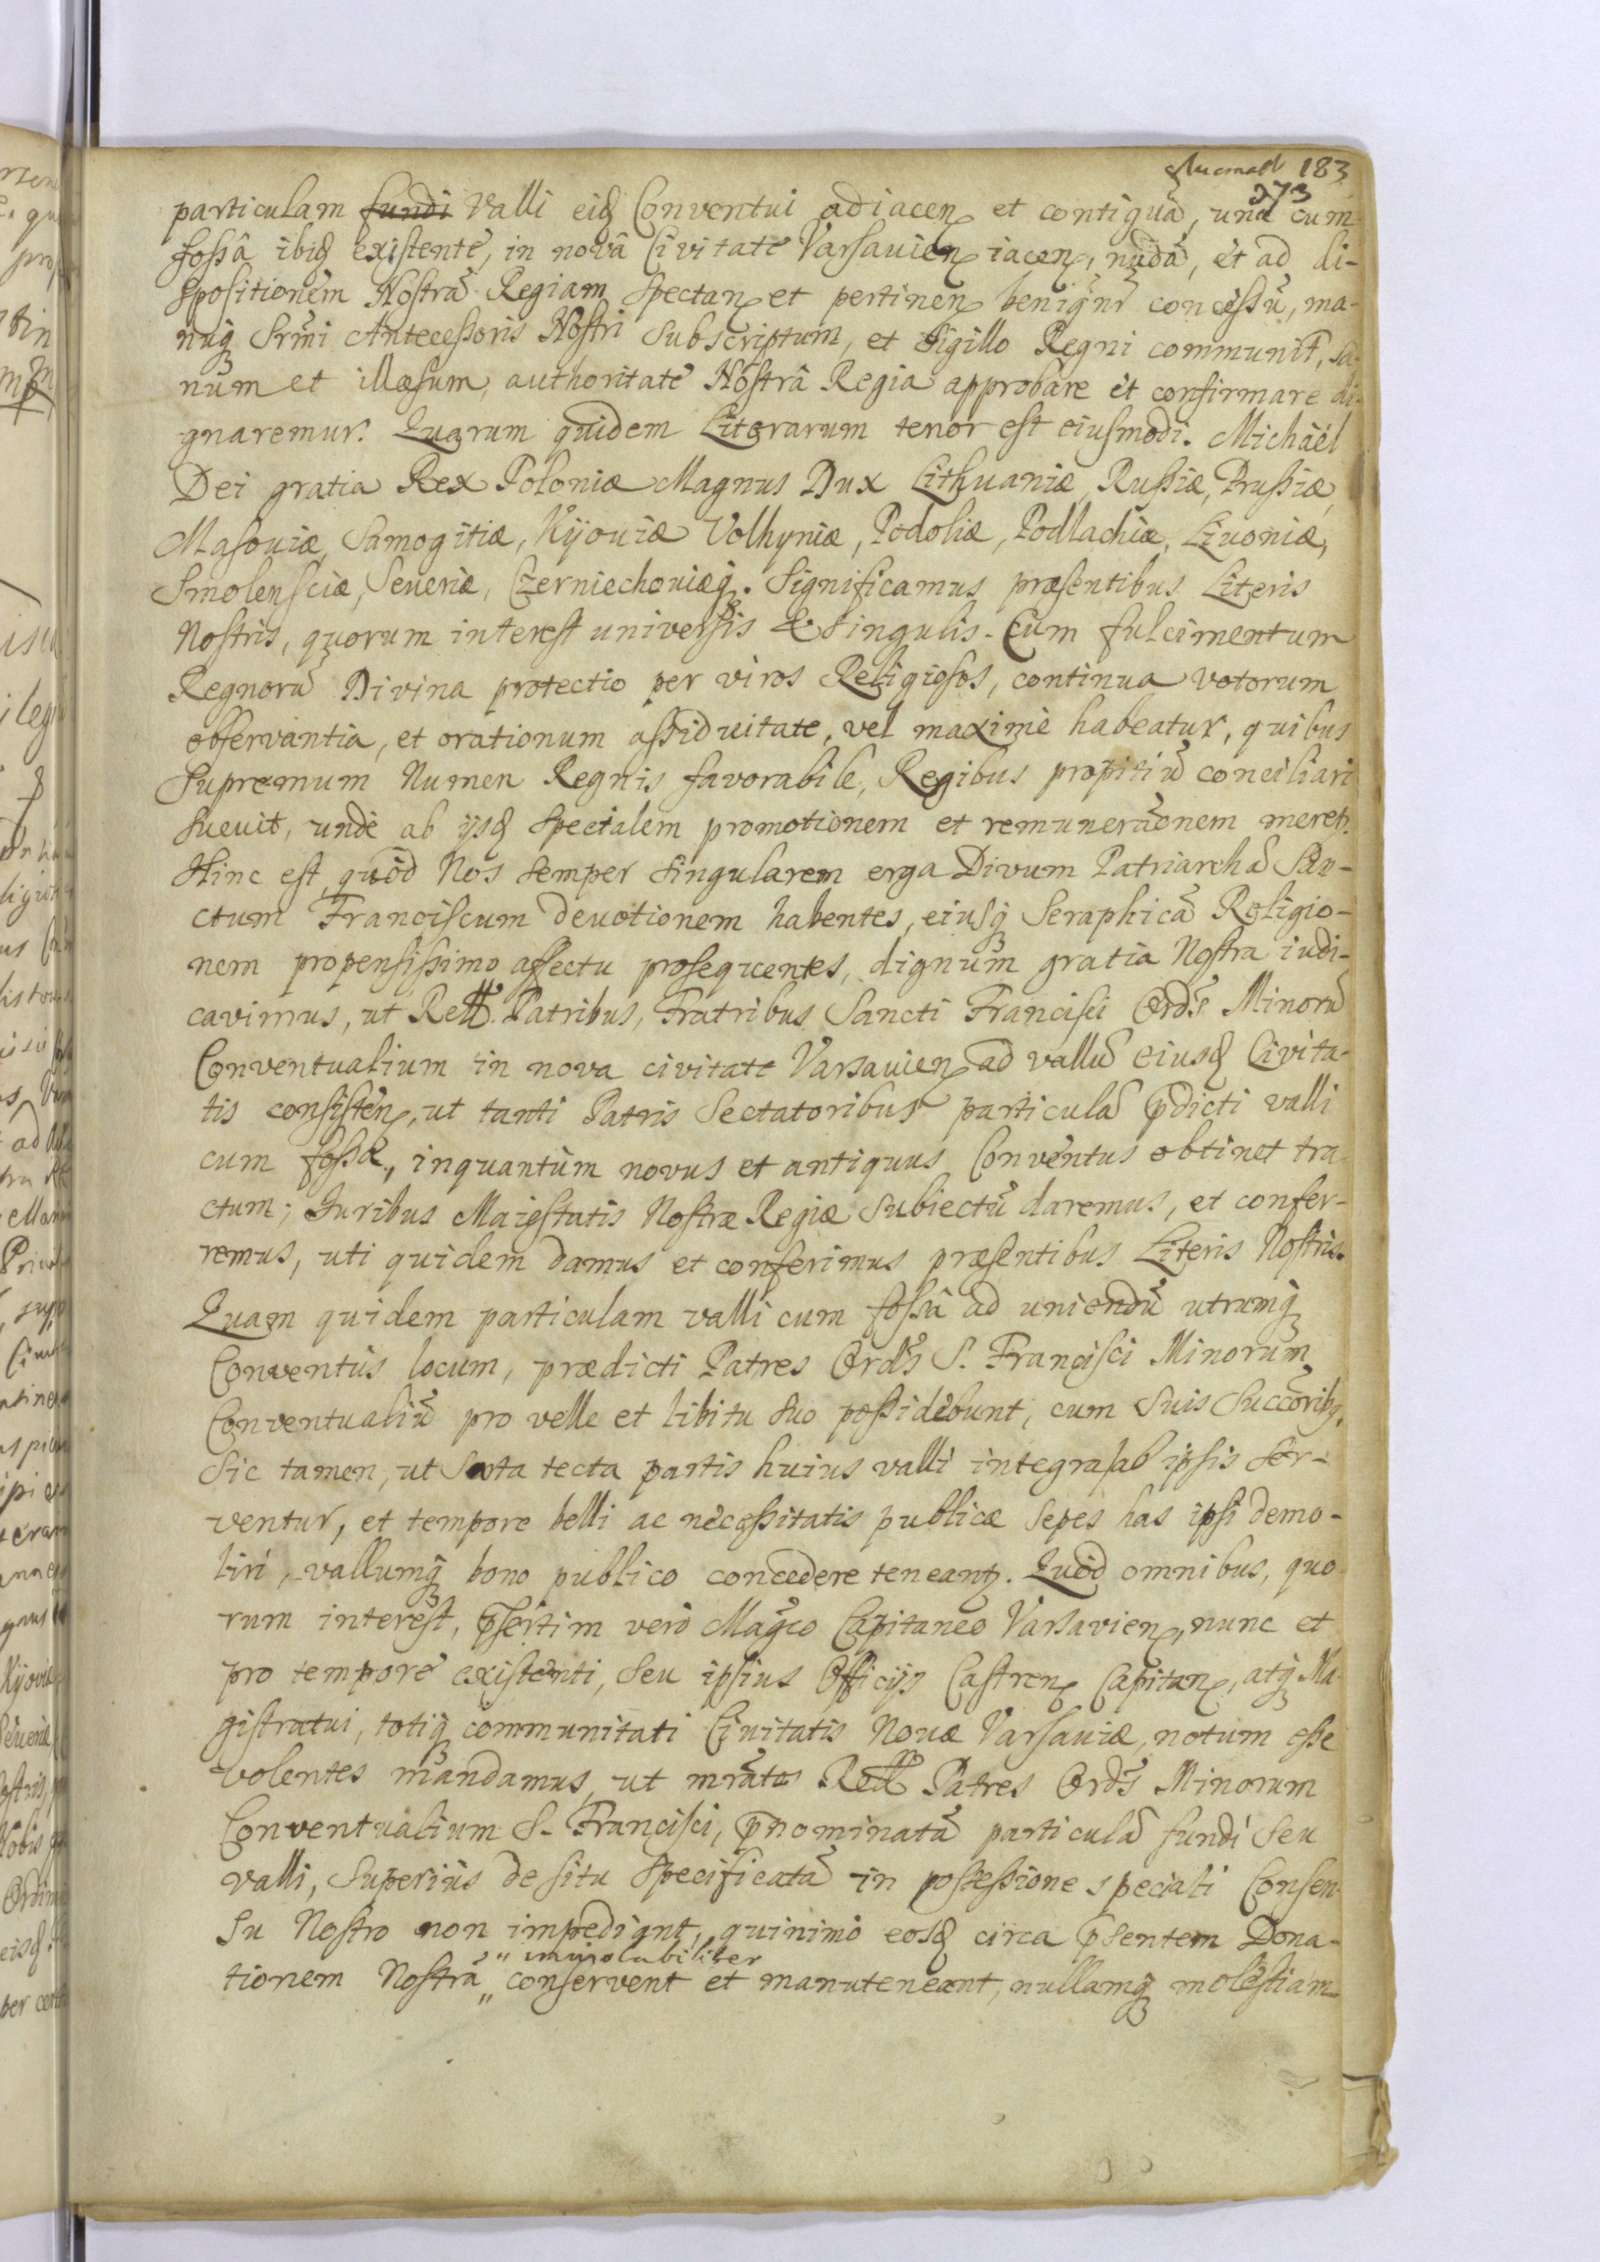 183
273
particulam fundi valli eidꝫ Conventui adiacen et contiguã, unà cum
fossâ ibidꝫ existente, in novâ Civitate Varsavien iacen, nudã, et ad di-
spositionem Nostrã Regiam spectan et pertinen benignè concessũ, ma-
nuq̃ Srm̃i Antecessoris Nostri subscriptum, et sigillo Regni communit, sa-
num et illæsum, authoritate Nostrâ Regia approbare et confirmare di-
gnaremur. Quarum quidem Literarum tenor est eiusmodi. Michaël
Dei gratia Rex Poloniæ Magnus Dux Lithuaniæ, Russiæ, Prussiæ,
Masoviæ, Samogitiæ, Kijoviæ Volhyniæ, Podoliæ, Podlachiæ, Livoniæ,
Smolensciæ, Severiæ, Czerniechoviæq̃. Significamus præsentibus Literis
Nostris, quorum interest universis & singulis. Cum fulcimentum
Regnorũ Divina protectio per viros Religiosos, continua votorum
observantia, et orationum assiduitate, vel maximè habeatur, quibus
Supremum Numen Regnis favorabile, Regibus propitiũ conciliari
suevit, unde ab ijsdꝫ specialem promotionem et remunerãonem meret.
Hinc est, quòd Nos semper singularem erga Divum Patriarchã San-
ctum Franciscum devotionem habentes, eiusq̃ Seraphicã Religio-
nem propensissimo affectu prosequentes, dignum gratia Nostra iudi-
cavimus, ut Rel. Patribus, Fratribus Sancti Francisci Ord̃s Minorũ
Conventualium in nova civitate Varsavien ad vallũ eiusdꝫ Civita-
tis consisten, ut tanti Patris Sectatoribus particulã p̃dicti valli
cum fossa, inquantùm novus et antiquus Conventus obtinet tra-
ctum; Iuribus Maiestatis Nostræ Regiæ subiectũ daremus, et confer-
remus, uti quidem damus et conferimus præsentibus Literis Nostris.
Quam quidem particulam valli cum fossâ ad uniendũ utrumq̃
Conventûs locum, prædicti Patres Ord̃s S. Francisci Minorum
Conventualiũ pro velle et libitu suo possidebunt, cum suis Succõribꝫ,
Sic tamen, ut sarta tecta partis huius valli integra ab ipsis ser-
ventur, et tempore belli ac necessitatis publicæ sepes has ipsi demo-
liri, vallumq̃ bono publico concedere teneant. Quòd omnibus, quo-
rum interest, p̃sertim verò Magco Capitaneo Varsavien, nunc et
pro tempore existenti, seu ipsius Officijs Castren Capitan, atq̃ Ma-
gistratui, totiq̃ communitati Civitatis Novæ Varsaviæ, notum esse
volentes mandamus, ut mrãtos Rel. Patres Ord̃s Minorum
Conventualium S. Francisci, p̃nominatã particulã fundi seu
valli, superiùs de situ specificatã in possessione speciali Consen-
su Nostro non impediant, quinimò eosdꝫ circa p̃sentem Dona-
inviolabiliter
tionem Nostrã conservent et manuteneant, nullamq̃ molestiam